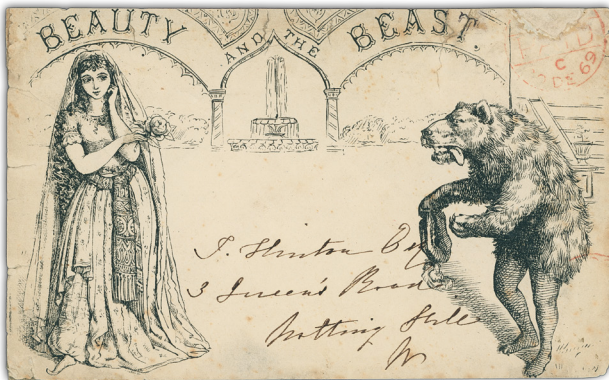 BEAUTY AND THE BEAST.
PAID
C
DE 69
J. Hinton Esq
3 Queen's Road
Notting Hill
W